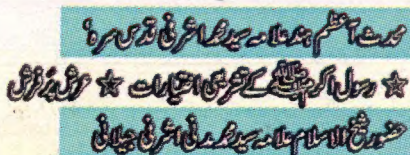 محدث اعظم ہند علامہ سید محمد اشرفی قدس سرہٗ
☆ رسول اکرم ﷺ کے تشریعی اختیارات ☆ عرش پر فرش
حضور شیخ الاسلام علامہ سید محمد مدنی اشرفی جیلانی